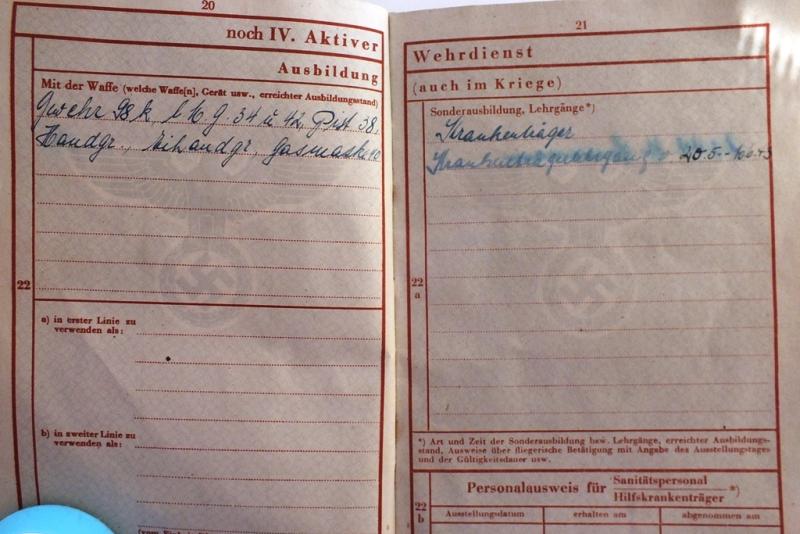 20
noch IV. Aktiver
Ausbildung
Mit der Waffe (welche Waffe[n], Gerät usw., erreichter Ausbildungsstand)
Gwehr 98k, l M.G. 34 u 42, Pist 38,
Handgr., Eihandgr., Gasmaske
22
a) in erster Linie zu
verwenden als:
b) in zweiter Linie zu
verwenden als:
21
Wehrdienst
(auch im Kriege)
Sonderausbildung, Lehrgänge*)
Krankenträger
Krankenträgerlehrgang 20.5.-
22
a
*) Art und Zeit der Sonderausbildung bzw. Lehrgänge, erreichter Ausbildungs-
stand, Ausweise über fliegerische Betätigung mit Angabe des Ausstellungstages
und der Gültigkeitsdauer usw.
22
b
Personalausweis für Sanitätspersonal
Hilfskrankenträger *)
Ausstellungsdatum erhalten am abgenommen am